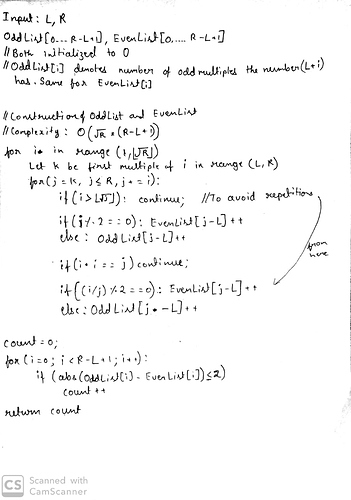 Input: L, R
OddList[0... R-L+1], EvenList[0,.... R-L+1]
// Both initialized to 0
// OddList[i] denotes number of odd multiples the number (L+i)
has. Same for EvenList[i]
// Construction of OddList and EvenList
// Complexity: O(√R * (R-L+1))
for i in range (1, ⌊√R⌋):
Let K be first multiple of i in range (L, R)
for(j = K, j ≤ R, j += i):
if (i > ⌊√j⌋): continue; // To avoid repetitions
if (j % 2 == 0): EvenList[j-L]++
else: OddList[j-L]++
from
here
if (i * i == j) continue;
if ((i/j) % 2 == 0): EvenList[j-L]++
else: OddList[j-L]++
count = 0;
for (i=0; i < R-L+1; i++):
if (abs(OddList[i] - EvenList[i]) ≤ 2)
count++
return count
CS Scanned with
CamScanner